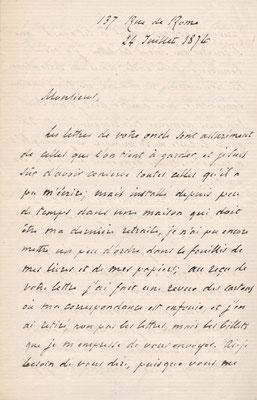 137 Rue de Rome
24 Juillet 1874
Monsieur,
Les lettres de votre oncle sont assurément
de celles que l'on tient à garder, et je suis
sûr d'avoir conservé toutes celles qu'il a
pu m'écrire; mais installé depuis peu
de temps dans une maison qui doit
être ma dernière retraite, je n'ai pu encore
mettre un peu d'ordre dans le fouillis de
mes livres et de mes papiers; au reçu de
votre lettre j'ai fait une revue des cartons
où ma correspondance est enfouie et j'en
ai retiré, non pas les lettres, mais les billets
que je m'empresse de vous envoyer. Ai-je
besoin de vous dire, puisque vous me